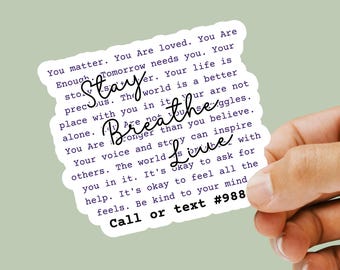 You matter. You Are loved. You Are
Enough. Tomorrow needs you. Your
Your life is
Stay
precious. The world is a better
place with you in it. Your are not
alone. struggles.
Breathe
You Are stronger than you believe.
Your voice and story can inspire
others. The world is with
Live
you in it. It's okay to ask for
help. It's okay to feel all the
feels. Be kind to your mind
Call or text #988